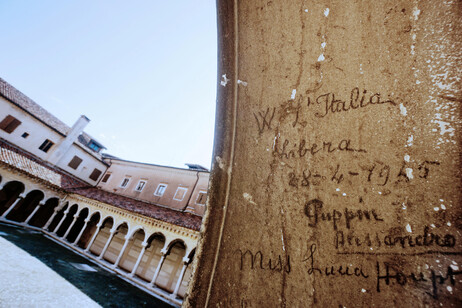 W L'Italia
Libera
28-4-1945
Puppin
Alessandro
Miss Luna Houpt